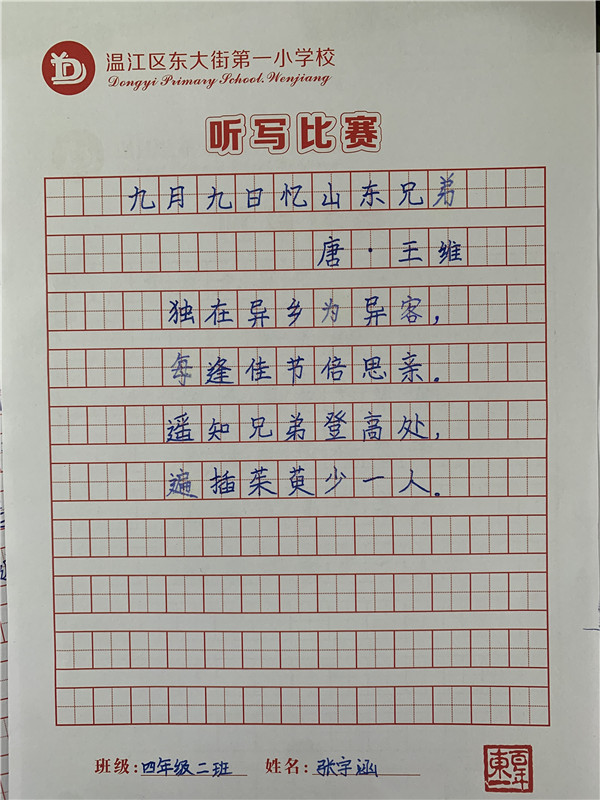 温江区东大街第一小学校
Dongyi Primary School. Wenjiang
听写比赛
九月九日忆山东兄弟
唐·王维
独在异乡为异客，
每逢佳节倍思亲。
遥知兄弟登高处，
遍插茱萸少一人。
班级:四年级二班 姓名:张宇涵
百年東一